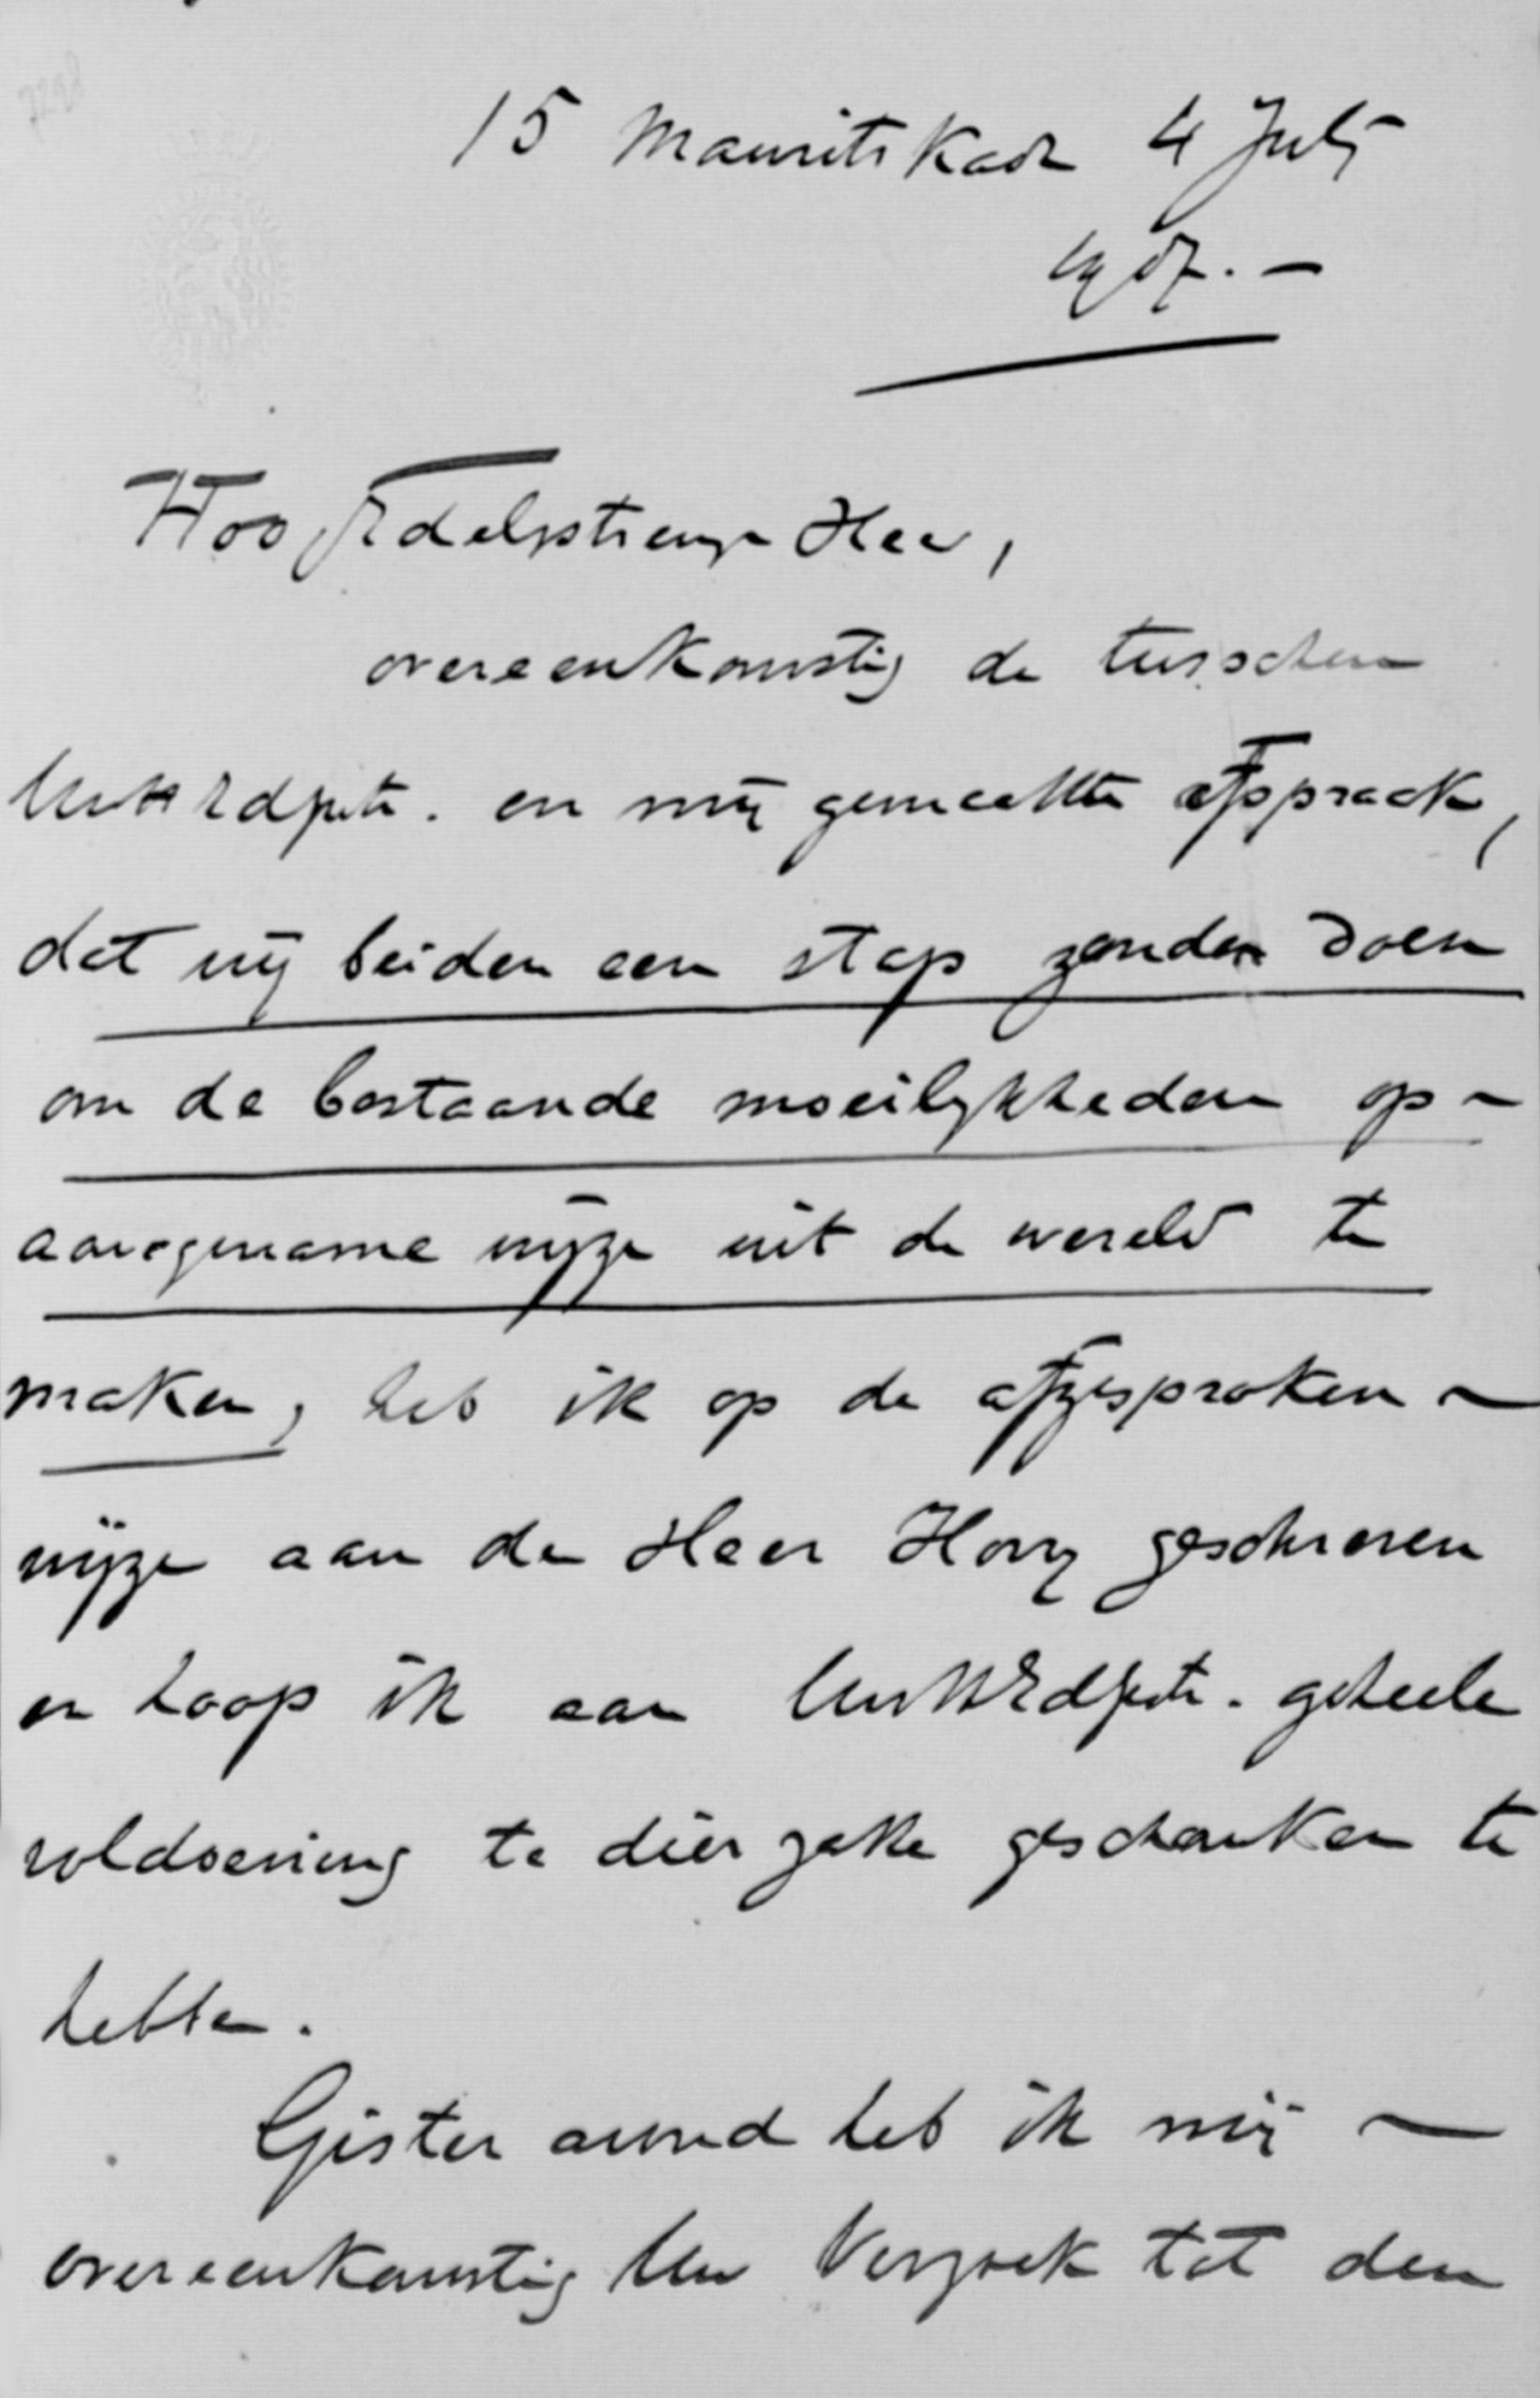 15 Mauritskade 4 July
1907. —
HoogEdelgestrenge Heer,
overeenkomstig de tusschen
UwHEdgestr. en mij gemaakte afspraak,
dat wij beiden een stap zouden doen
om de bestaande moeilijkheden op
aangename wijze uit de wereld te
maken, heb ik op de afgesproken
wijze aan de Heer Hovy geschreven
en hoop ik aan UwHEdgestr. geheele
voldoening te dier zake geschonken te
hebben.
Gister avond heb ik mij
overeenkomstig Uw Verzoek tot den